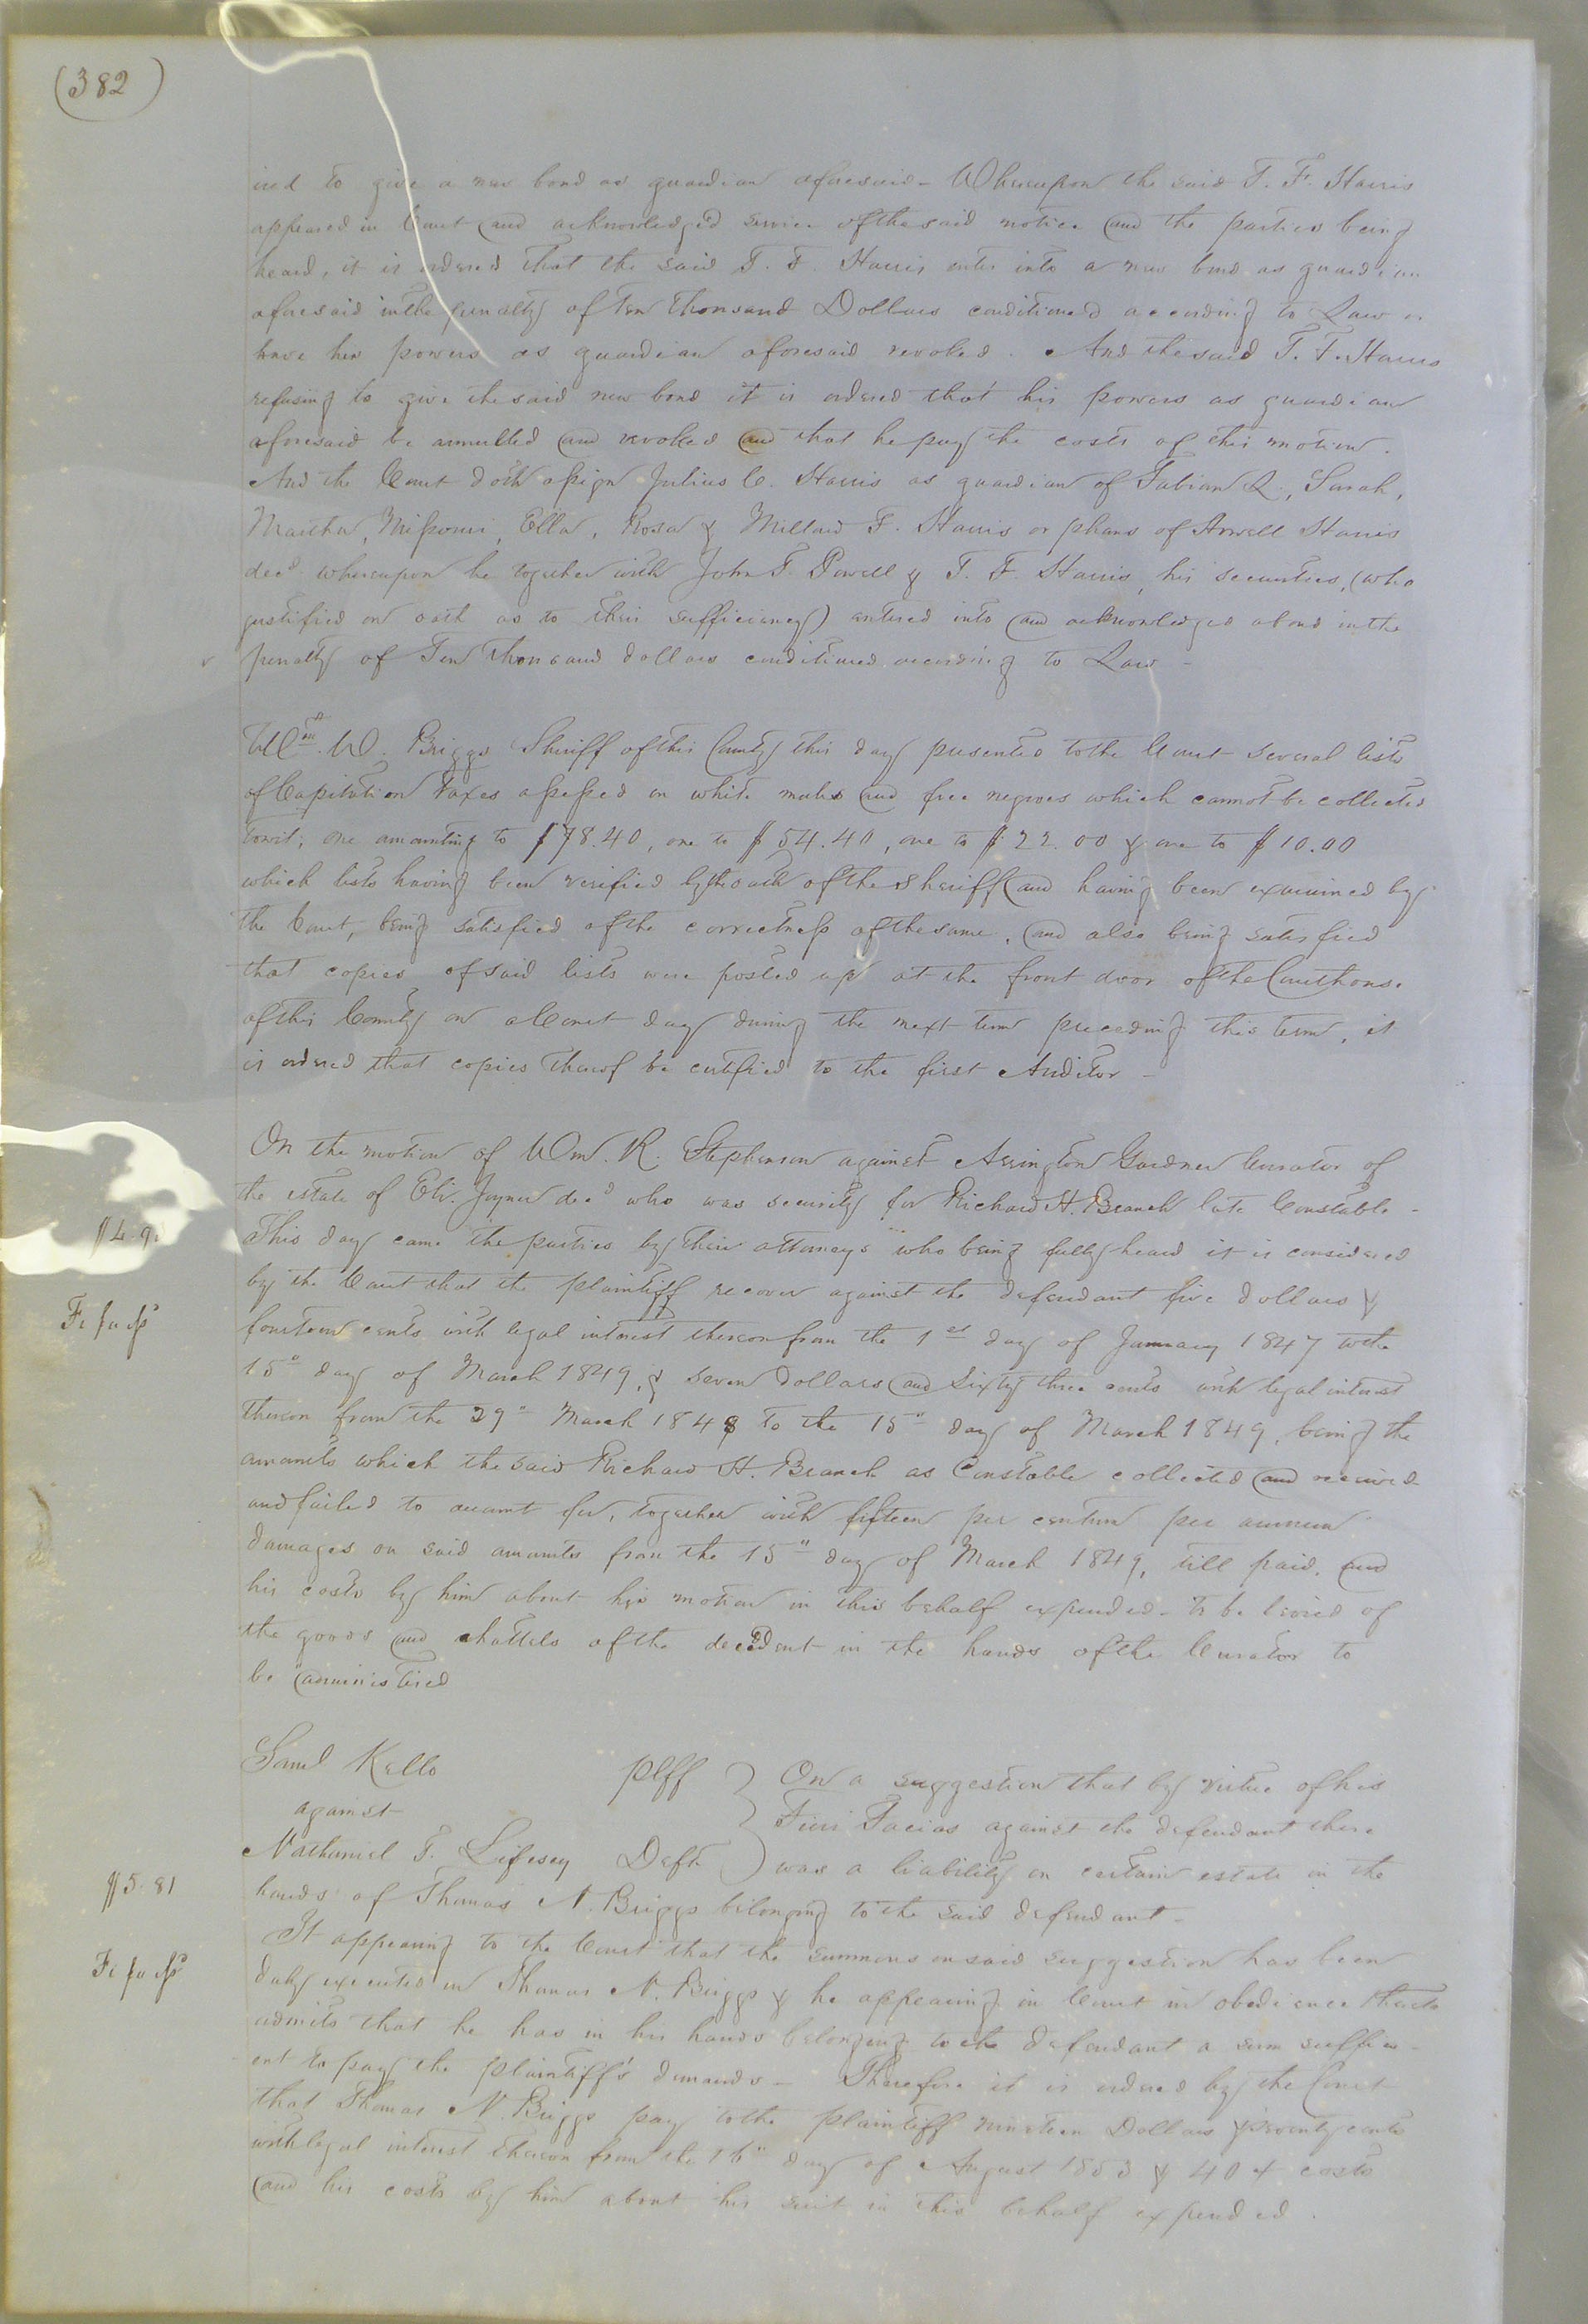 (382)
ired to give a new bond as guardian aforesaid - Whereupon the said T. F. Harris
appeared in Court and acknowledged service of the said notice and the parties being
heard, it is ordered that the said T. F. Harris enter into a new bond as guardian
aforesaid in the penalty of Ten Thousand Dollars conditioned according to Law or
have his powers as guardian aforesaid revoked. And the said T. F. Harris
refusing to give the said new bond it is ordered that his powers as guardian
aforesaid be annulled and revoked and that he pay the costs of this motion.
And the Court doth assign Julius C. Harris as guardian of Fabian L., Sarah,
Martha, Missouri, Ella, Rosa & Millard F. Harris orphans of Harris
decd. whereupon he together with John T. Powell & T. F. Harris, his securities, (who
justified on oath as to their sufficiency) entered into and acknowledged a bond in the
penalty of Ten Thousand dollars conditioned according to Law -
Wm. W. Briggs Sheriff of this County this day presented to the Court several lists
of Capitation Taxes assessed on white males and free negroes which cannot be collected
towit; one amounting to $78.40, one to $54.40, one to $22.00 & one to $10.00
which lists having been verified by the oath of the Sheriff and having been examined by
the Court, being satisfied of the correctness of the same, and also being satisfied
that copies of said lists were posted up at the front door of the Courthouse
of this County on a Court day during the next term preceding this term, it
is ordered that copies thereof be certified to the first Auditor -
On the motion of Wm. R. Stephenson against Arrington Gardner Curator of
the estate of Eli. Joyner decd who was security for Richard H. Branch late Constable -
This day came the parties by their attorneys who being fully heard it is considered
by the Court that the plaintiff recover against the defendant five dollars &
fourteen cents with legal interest thereon from the 1st day of January 1847 to the
15" day of March 1849, & seven dollars and sixty three cents with legal interest
thereon from the 29" March 1848 to the 15" day of March 1849, being the
amounts which the said Richard H. Branch as Constable collected and received
and failed to account for, together with fifteen per centum per annum
damages on said amounts from the 15" day of March 1849, till paid, and
his costs by him about his motion in this behalf expended - to be levied of
the goods and chattels of the decedent in the hands of the Curator to
be administered
$4.9
Fi fa iss
Saml Kello plff
against
Nathaniel T. Lifesey Deft
On a suggestion that by virtue of his
Fieri Facias against the defendant there
was a liability on certain estate in the
hands of Thomas N. Briggs belonging to the said defendant -
It appearing to the Court that the summons on said suggestion has been
duly executed on Thomas N. Briggs & he appearing in Court in obedience thereto
admits that he has in his hands belonging to the defendant a sum suffici-
ent to pay the plaintiff's demands - Therefore it is ordered by the Court
that Thomas N. Briggs pay to the plaintiff nineteen Dollars & seventy cents
with legal interest thereon from the 16" day of August 1853 & 404 costs
and his costs by him about his suit in this behalf expended.
$5.81
Fi fa iss